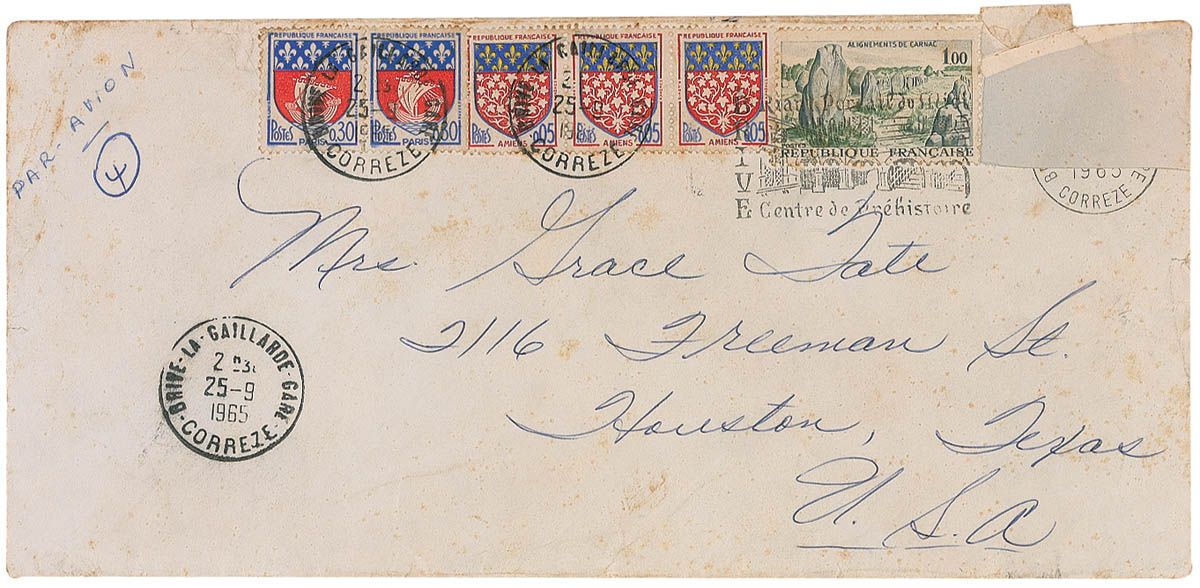 PAR AVION
4
REPUBLIQUE FRANÇAISE
POSTES 0.30
PARIS
REPUBLIQUE FRANÇAISE
POSTES 0.30
PARIS
REPUBLIQUE FRANÇAISE
POSTES 0.05
AMIENS
REPUBLIQUE FRANÇAISE
POSTES 0.05
AMIENS
REPUBLIQUE FRANÇAISE
POSTES 0.05
AMIENS
ALIGNEMENTS DE CARNAC
1.00
REPUBLIQUE FRANÇAISE
25-9
CORREZE
25-9
CORREZE
BRIVE
Riant Portail du Midi
Centre de Préhistoire
1965
CORREZE
Mrs. Grace Tate
2116 Freeman St.
Houston, Texas
U.S.A
BRIVE-LA-GAILLARDE-GARE
25-9
1965
CORREZE